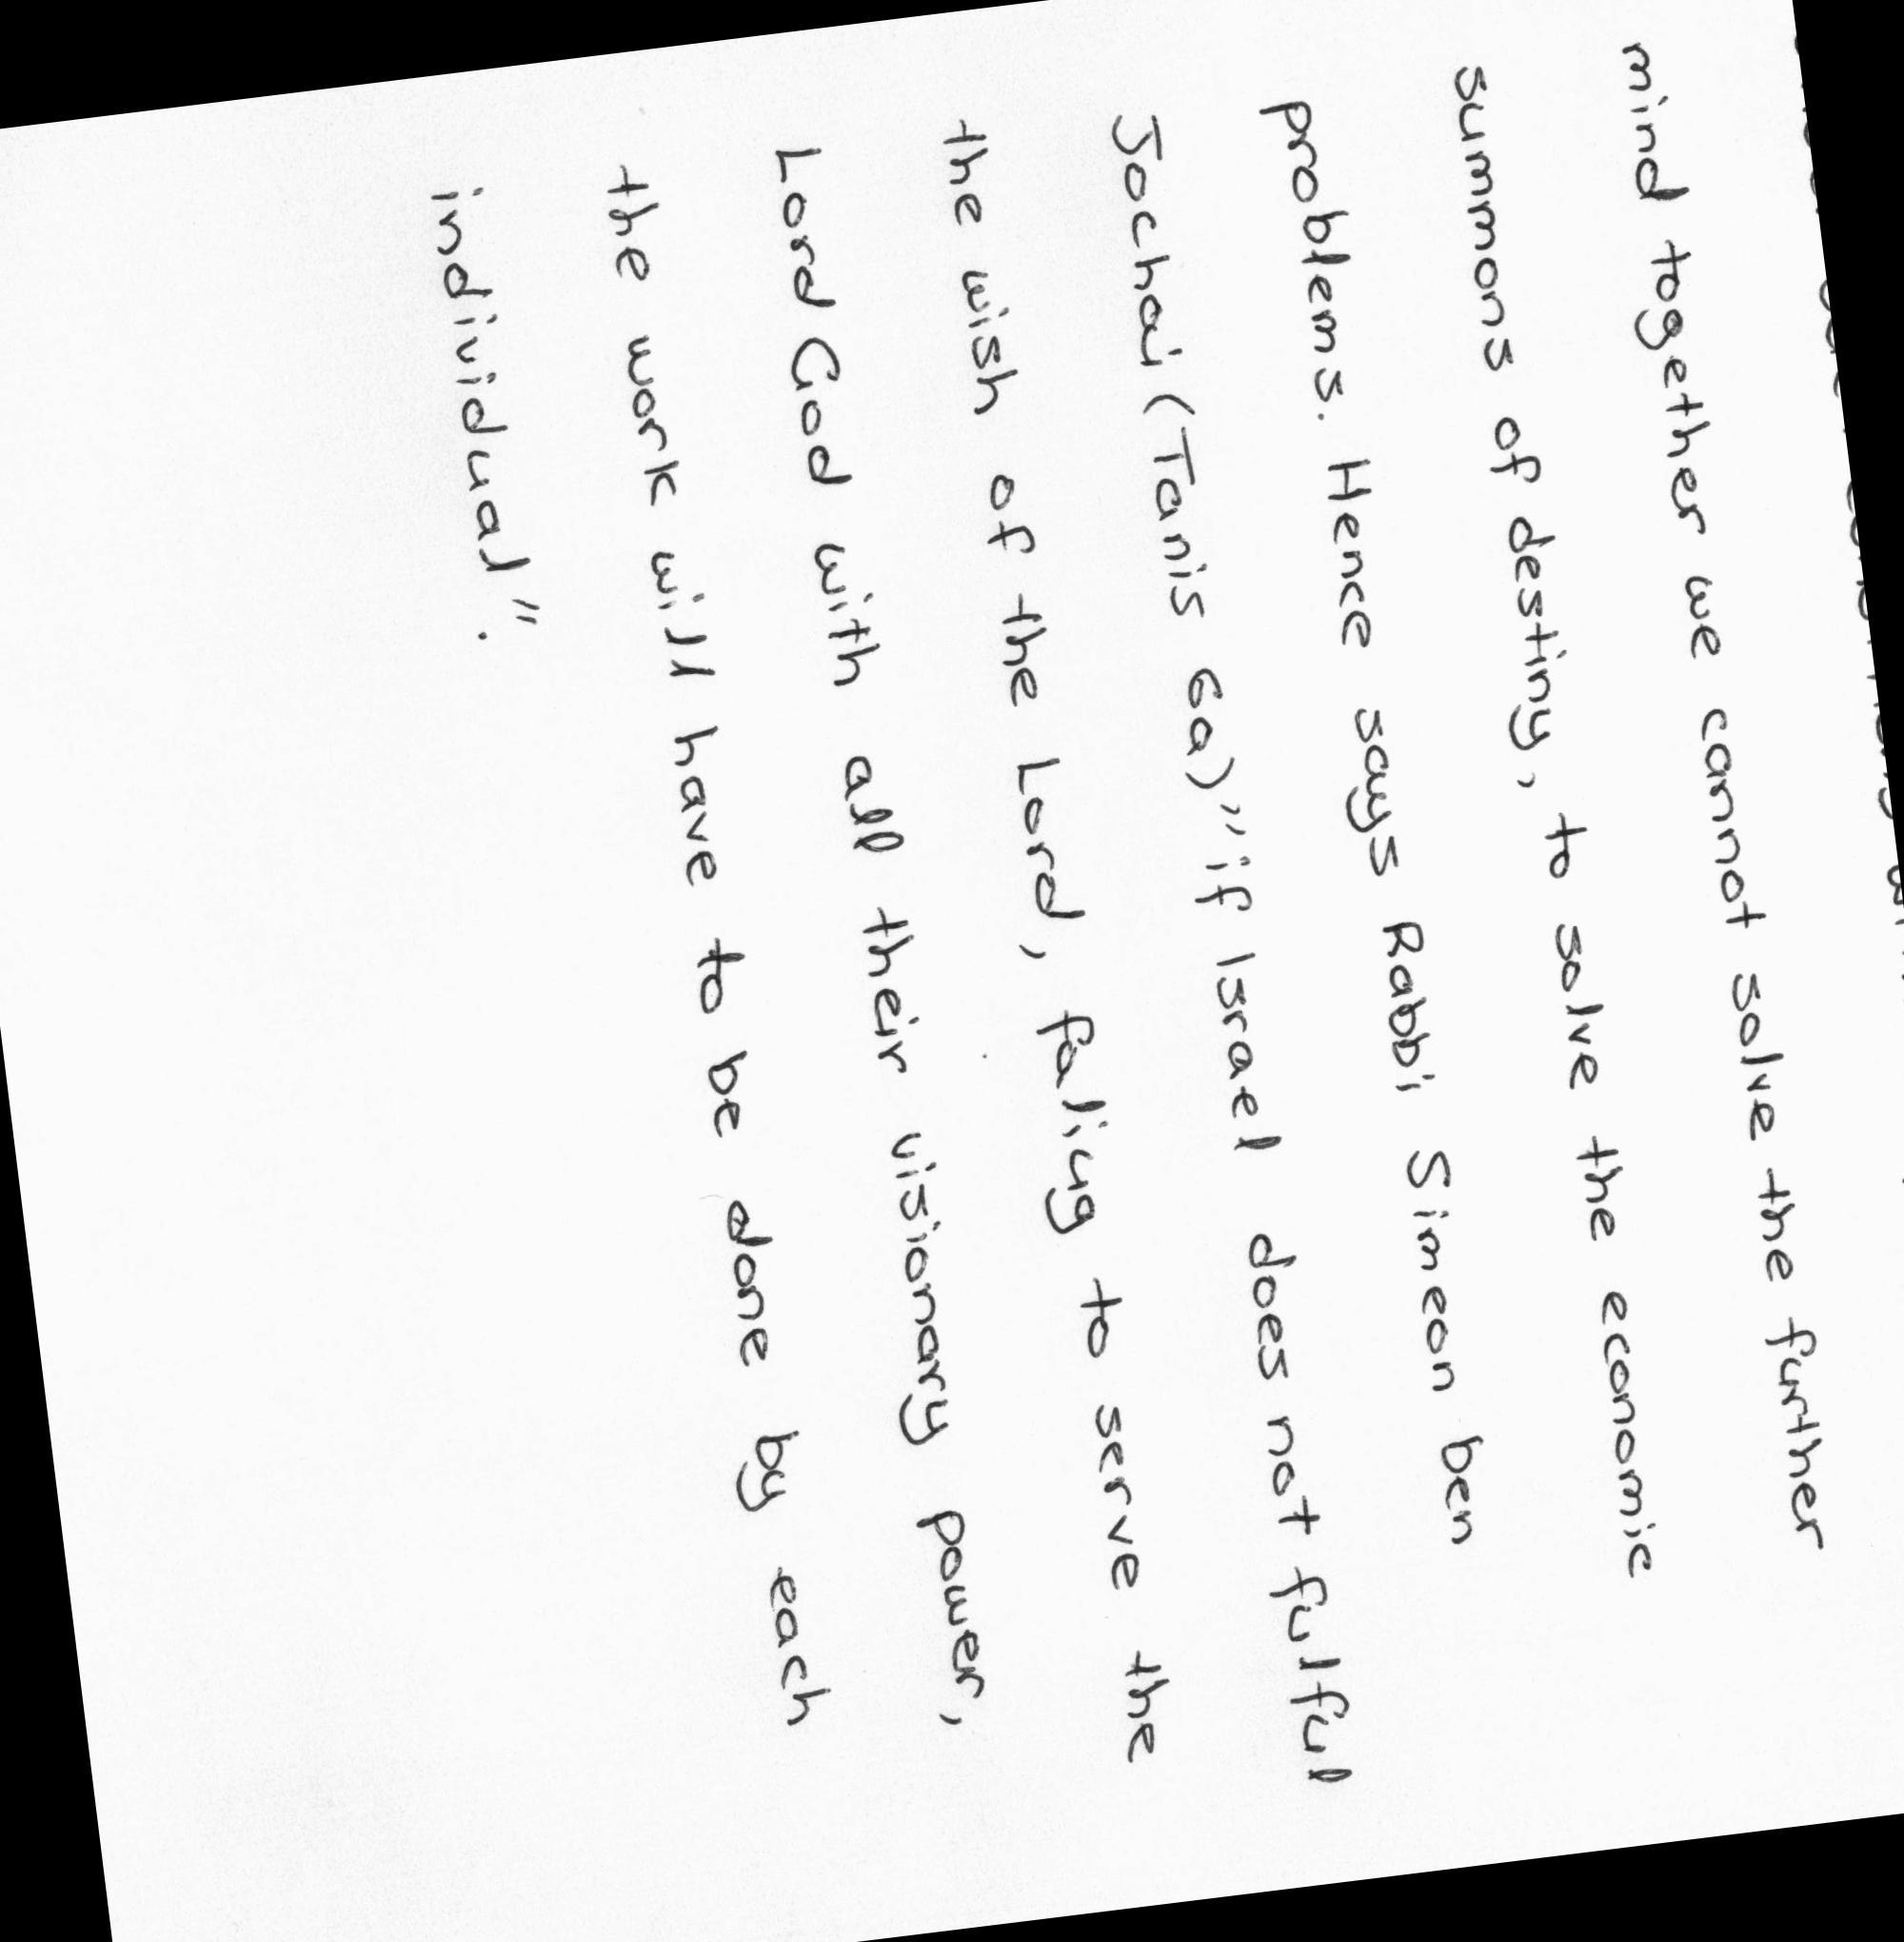 mind together we cannot solve the further
summons of destiny, to solve the economic
problems. Hence says Rabbi Simeon ben
Jochai (Tanis 6a) "if Israel does not fulful
the wish of the Lord, faliug to serve the
Lord God with all their visionary power,
the work will have to be done by each
individual".